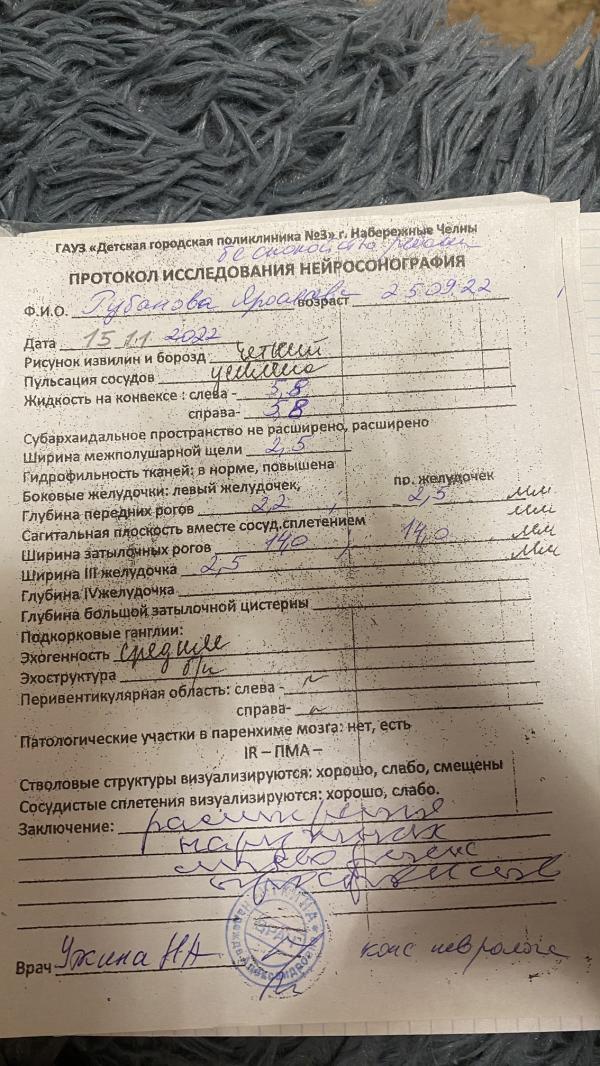 ГАУЗ «Детская городская поликлиника №3» г. Набережные Челны
беспокойство
ПРОТОКОЛ ИССЛЕДОВАНИЯ НЕЙРОСОНОГРАФИЯ
Ф.И.О. Губанова возраст 25.09.22
Дата 15.11 2022
Рисунок извилин и борозд четкий
Пульсация сосудов усилена
Жидкость на конвексе : слева - 5,8
справа- 5,8
Субархаидальное пространство не расширено, расширено
Ширина межполушарной щели 2,5
Гидрофильность тканей: в норме, повышена
Боковые желудочки: левый желудочек, пр. желудочек
Глубина передних рогов 2,2 , 2,5 мм
Сагитальная плоскость вместе сосуд.сплетением мм
Ширина затылочных рогов 14,0 , 14,0 мм
Ширина III желудочка 2,5 мм
Глубина IVжелудочка
Глубина большой затылочной цистерны
Подкорковые ганглии:
Эхогенность средняя
Эхоструктура б/и
Перивентикулярная область: слева -
справа-
Патологические участки в паренхиме мозга: нет, есть
IR – ПМА –
Стволовые структуры визуализируются: хорошо, слабо, смещены
Сосудистые сплетения визуализируются: хорошо, слабо.
Заключение: расширение
наружных
ликворных
пространств
Врач Ужина НА конс невролога